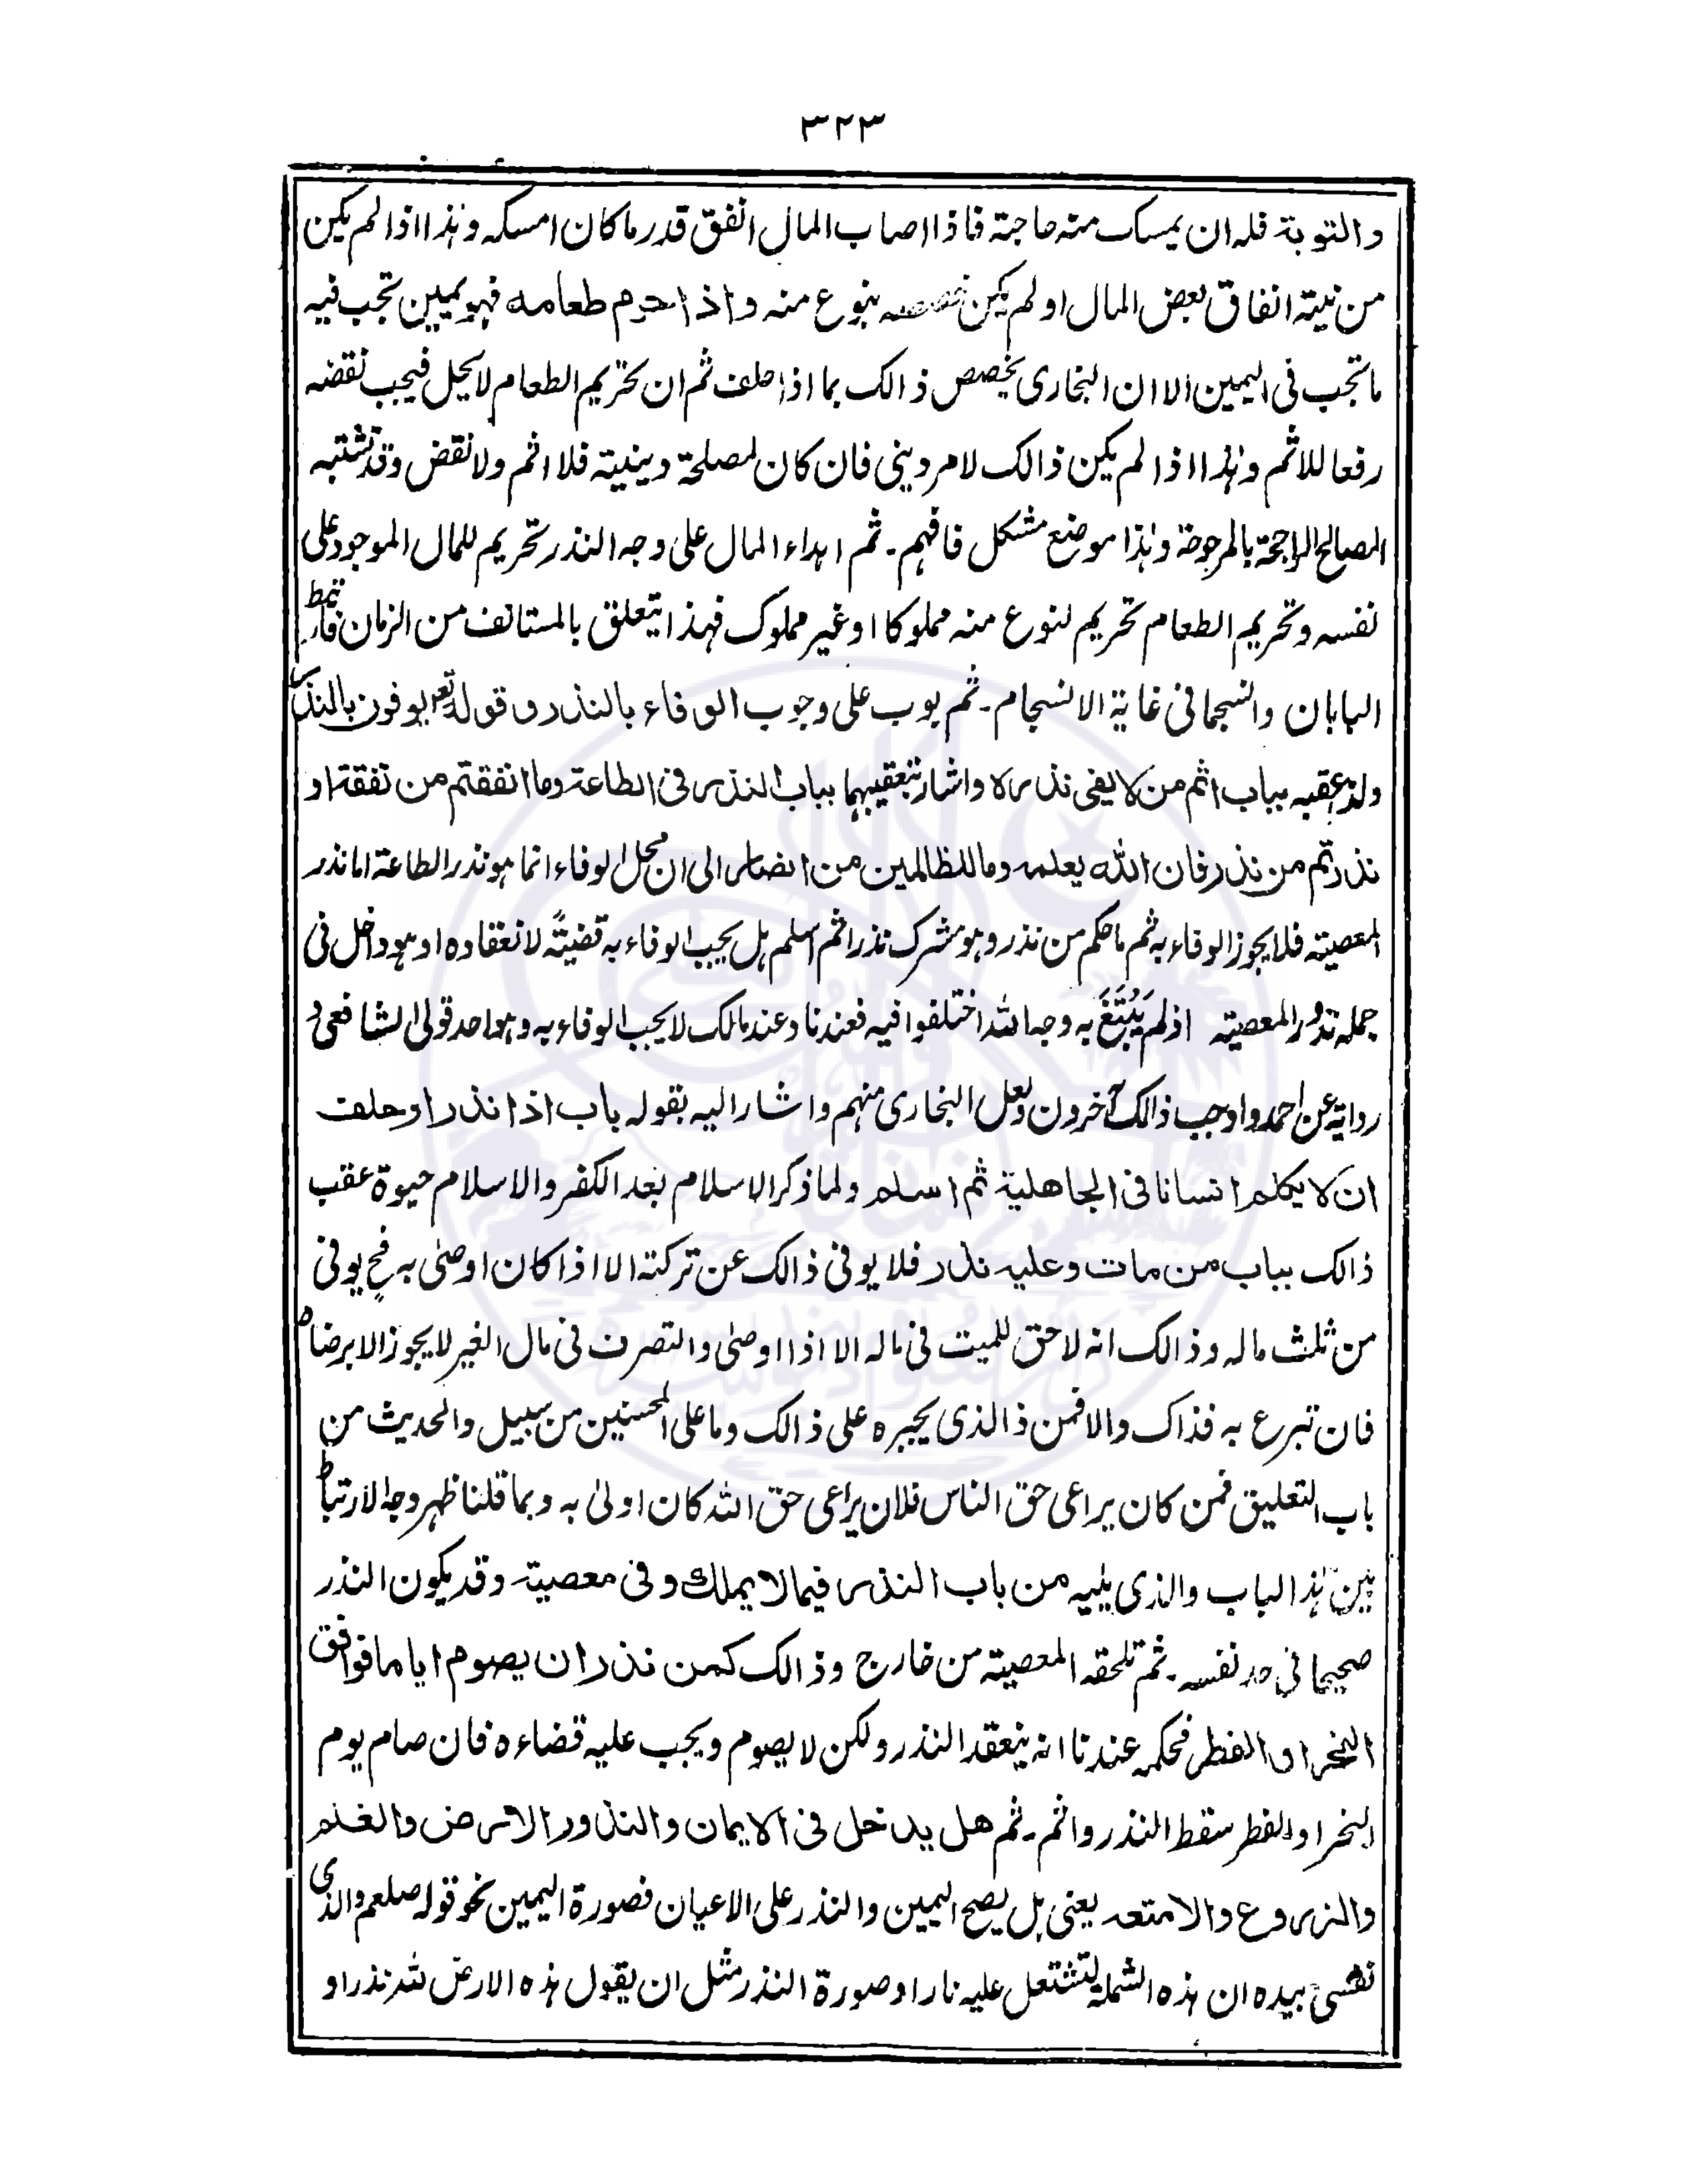 ٣٢٣
والتوبة فله ان يمسك منه حاجته فاذا اصاب المال انفق قدر ما كان امسكه وهذا اذا لم يكن
من نيته انفاق بعض المال او لم يكن خصصه بنوع منه واذا حرم طعامه فهو يمين تجب فيه
ما تجب فى اليمين الا ان البخارى يخصص ذالك بما اذا حلف ثم ان تحريم الطعام لا يحل فيجب نقضه
رفعا للاثم وهذا اذا لم يكن ذالك لامر دينى فان كان لمصلحة دينية فلا اثم ولا نقض وقد تشتبه
المصالح الراجحة بالمرجوحة وهذا موضع مشكل فافهم۔ ثم اهداء المال على وجه النذر تحريم للمال الموجود على
نفسه وتحريم الطعام تحريم لنوع منه مملوكا او غير مملوك فهذا يتعلق بالمستانف من الزمان فارتبط
البابان وانسجما فى غاية الانسجام۔ ثم بوب على وجوب الوفاء بالنذر و قوله تع يوفون بالنذر
ولذا عقبه بباب اثم من لا يفى نذره واشار بتعقيبهما بباب النذر فى الطاعة وما انفقتم من نفقة او
نذرتم من نذر فان الله يعلمه وما للظالمين من انصار الى ان محل الوفاء انما هو نذر الطاعة اما نذر
المعصيته فلا يجوز الوفاء به ثم ما حكم من نذر وهو مشرك نذرا ثم اسلم هل يجب الوفاء به قضيتة لانعقاده او هو داخل فى
جمله نذور المعصيته اذ لم يُبْتَغَ به وجه الله اختلفوا فيه فعندنا وعند مالك لا يجب الوفاء به وهو احد قولى الشافعى و
رواية عن احمد واوجب ذالك آخرون ولعل البخارى منهم واشار اليه بقوله باب اذا نذر او حلف
ان لا يكلم انسانا فى الجاهلية ثم اسلم ولما ذكر الاسلام بعد الكفر والاسلام حيوة عقب
ذالك بباب من مات وعليه نذر فلا يوفى ذالك عن تركته الا اذا كان اوصىٰ به فح يوفى
من ثلث ماله وذالك انه لا حق للميت فى ماله الا اذا اوصىٰ والتصرف فى مال الغير لا يجوز الا برضاه
فان تبرع به فذاك والا فمن ذالذى يجبره على ذالك وما على المحسنين من سبيل والحديث من
باب التعليق فمن كان يراعى حق الناس فلان يراعى حق الله كان اولىٰ به وبما قلنا ظهر وجه الارتباط
بين هذا الباب والذى يليه من باب النذر فيما لا يملك وفى معصية وقد يكون النذر
صحيحا فى حد نفسه۔ ثم تلحقه المعصيته من خارج وذالك كمن نذر ان يصوم اياما فوافق
النحر او الفطر فحكمه عندنا انه ينعقد النذر ولكن لا يصوم ويجب عليه قضاءه فان صام يوم
النحر او الفطر سقط النذر واثم۔ ثم هل يدخل فى الايمان والنذور الارض والغنم
والزروع والامتعه يعنى هل يصح اليمين والنذر على الاعيان فصورة اليمين نحو قوله صلعم والذى
نفسى بيده ان هذه الشملة لتشتعل عليه نارا وصورة النذر مثل ان يقول هذه الارض لله نذرا و